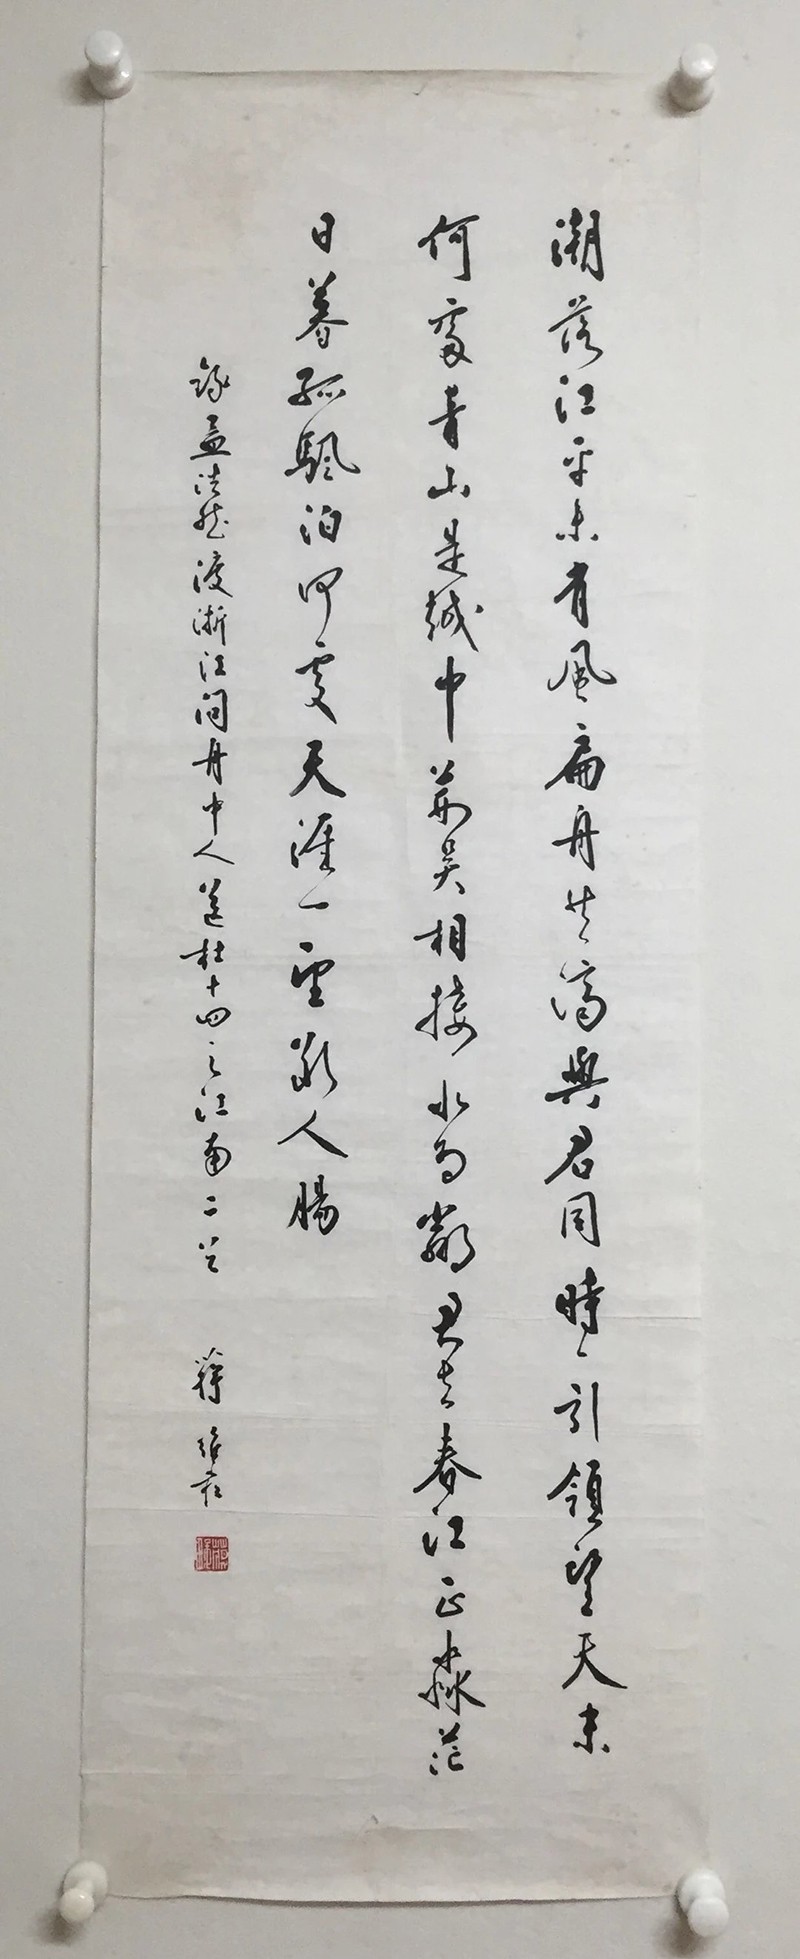 潮落江平未有風扁舟共濟與君同時々引領望天末
何處青山是越中荊吳相接水為鄰君去春江正淼茫
日暮孤颿泊何處天涯一望斷人腸
錄孟浩然渡浙江問舟中人送杜十四之江南二首 蔣維崧